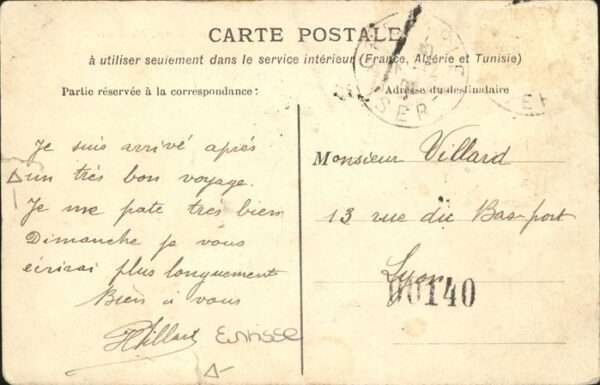 CARTE POSTALE
à utiliser seulement dans le service intérieur (France, Algérie et Tunisie)
Partie réservée à la correspondance :
Adresse du destinataire
Je suis arrivé après
un très bon voyage.
Je me
très bien
Dimanche je vous
écrirai plus longuement
Bien à vous
HVillard
Monsieur Villard
13 rue du Bas-port
Lyon
00140